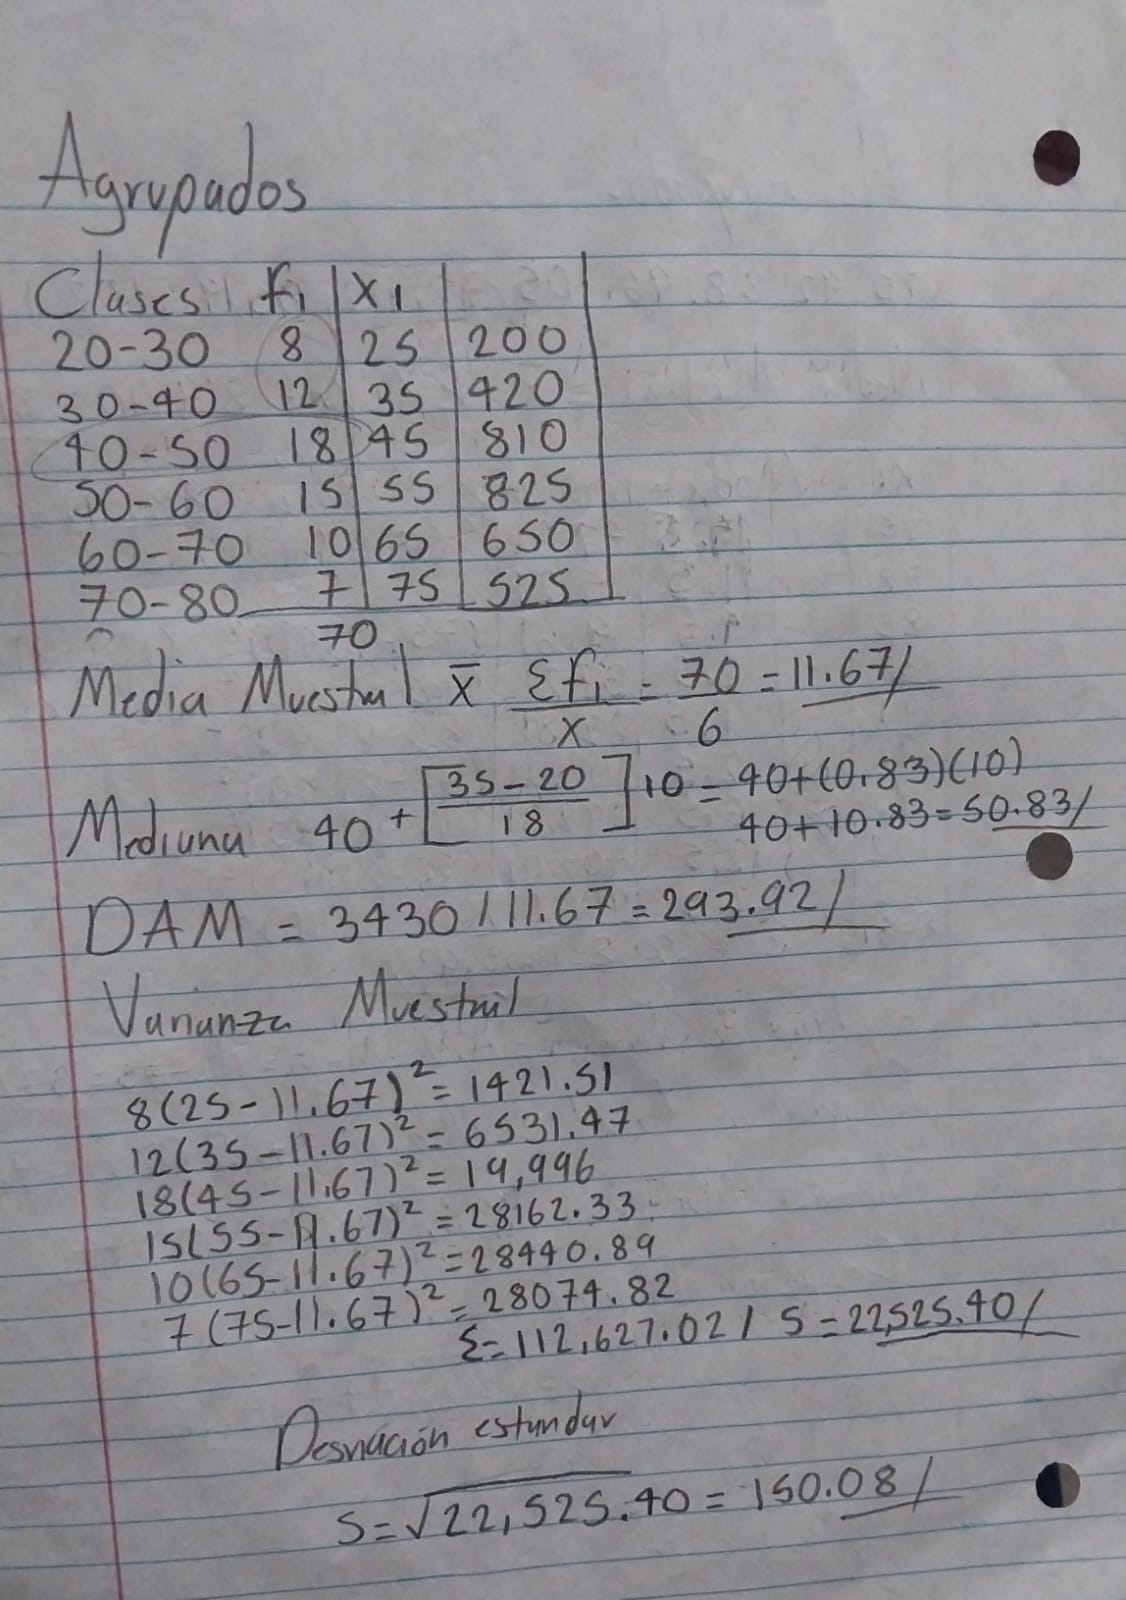 Agrupados
Clases fi x1
20-30 8 25 200
30-40 12 35 420
40-50 18 45 810
50-60 15 55 825
60-70 10 65 650
70-80 7 75 525
70
Media Muestral x̄ Σfi/x = 70/6 = 11.67/
Mediana 40 + [35-20/18] 10 = 40+(0.83)(10)
40+10.83=50.83/
DAM = 3430/11.67=293.92/
Varianza Muestral
8(25-11.67)²=1421.51
12(35-11.67)²=6531.47
18(45-11.67)²=19,996
15(55-11.67)²=28162.33
10(65-11.67)²=28440.89
7(75-11.67)²=28074.82
Σ=112,627.02/ 5=22,525.40/
Desviación estandar
S=√22,525.40=150.08/